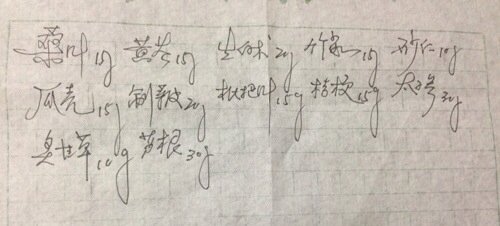 桑叶15g 黄芩15g 生白术20g 竹茹15g 砂仁10g
瓜壳15g 制鞭20g 枇杷叶15g 桔梗15g 太子参30g
炙甘草10g 芦根30g